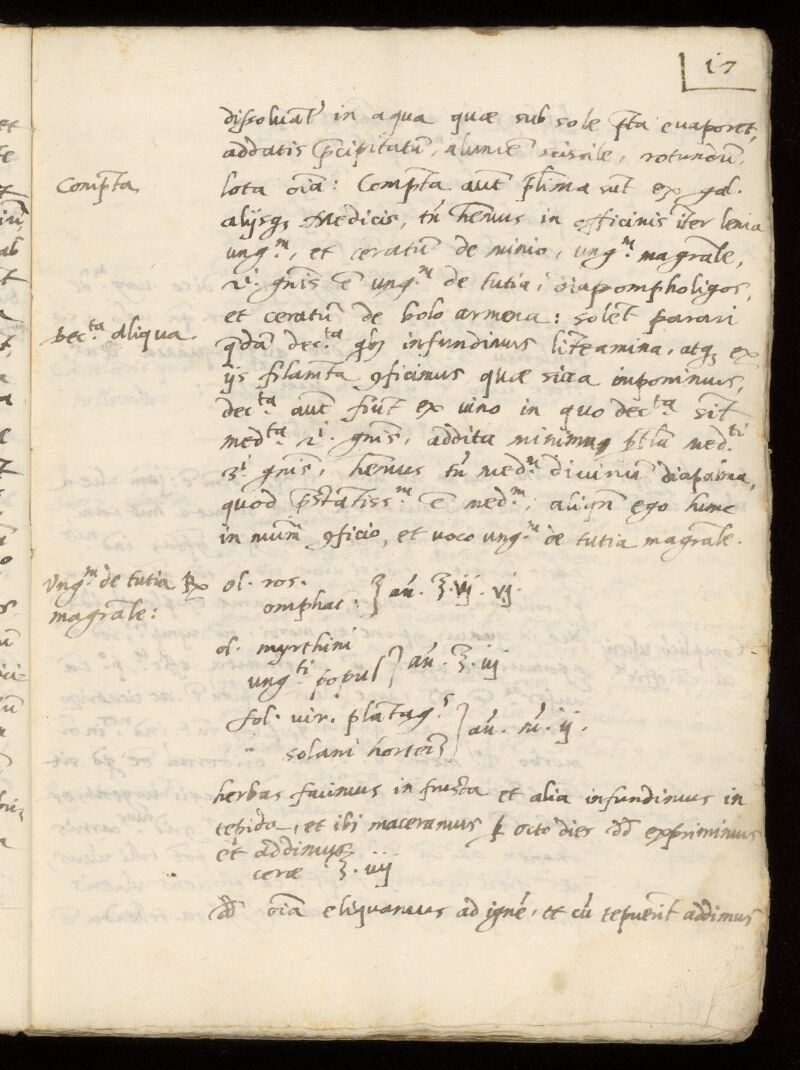 17
dissoluat' in aqua quae sub sole p̄ta euaporet,
addatis p̄cipitatū, alumē scissile, rotundū,
Compta
lota oīa: Compta aut̄ pl̄ima sūt ex gal.
alijsq3 Medicis, tn̄ hēmus in officinis iter lenia
ung.m, et ceratū de minio, ung.m magrāle,
2.i gn̄is ē ung.m de tutia, diapompholigos,
et ceratū de bolo armena: solēt parari
Dec.ta aliqua
q̄dā dec.ta qb3 infundimus līteamina, atq3 ex
ijs filamēta 9ficimus quae sicca imponimus,
dec.ta aut̄ fiūt ex vino in quo dec.ta sīt
med.ta 2.i gn̄is, addita med.ti
3.i gn̄is, hēmus tn̄ med.m diuinū diapalma,
quod p̄statiss.m ē med.m; aliqn̄ ego hunc
in mum̄ 9ficio, et uoco ung.m de tutia magrāle.
Ung.m de tutia ℞
magrāle:
ol. ros.
omphac. } an̄. ℥. vj. vj.
ol. myrthini
ung.ti popul } an̄. ℥. iij
fol. vir. plātag.s
" solani hortēs } an̄. m̄. ij.
herbas facimus in frusta et alia infundimus in
tepida, et ibi maceramus p octo dies dd exprimimus
et addimus
cerae ℥. iiij
dd oīa eliquamus ad ignē, et cū tepuerīt addimus